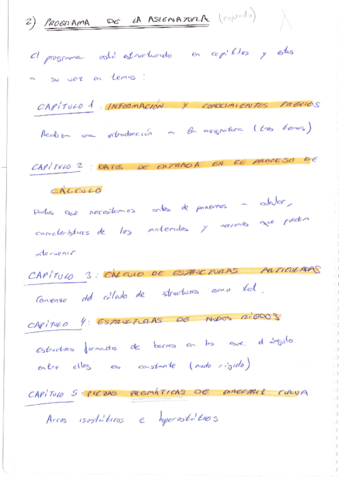 2) PROGRAMA DE LA ASIGNATURA
El programa está estructurado en capítulos y estos
a su vez en temas:
CAPÍTULO 1: INFORMACIÓN Y CONOCIMIENTOS PREVIOS
Realiza una introducción a la asignatura (tres temas)
CAPÍTULO 2: DATOS DE ENTRADA EN EL PROCESO DE
CÁLCULO
Datos que necesitamos antes de ponernos a calcular,
características de los materiales y acciones que pueden
intervenir
CAPÍTULO 3: CÁLCULO DE ESTRUCTURAS ARTICULADAS
Comienzo del cálculo de estructuras como tal.
CAPÍTULO 4: ESTRUCTURAS DE NUDOS RÍGIDOS
estructuras formadas de barras en las que el ángulo
entre ellas es constante (nudo rígido)
CAPÍTULO 5: PIEZAS PRISMÁTICAS DE DIRECTRIZ CURVA
Arcos isostáticos e hiperestáticos